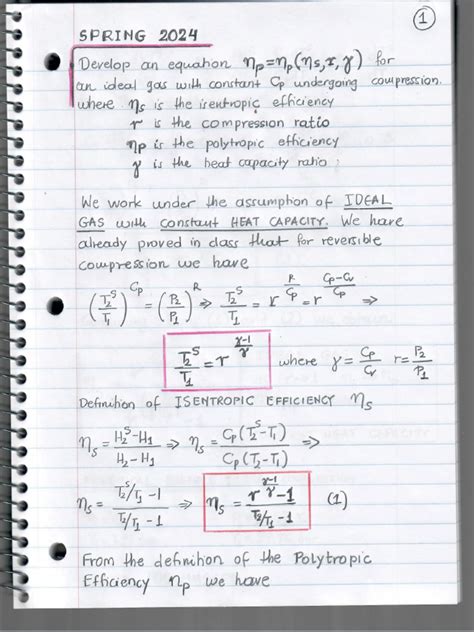 ①
SPRING 2024
Develop an equation ηp=ηp(ηs,r,γ) for
an ideal gas with constant Cp undergoing compression.
where ηs is the isentropic efficiency
r is the compression ratio
ηp is the polytropic efficiency
γ is the heat capacity ratio :
We work under the assumption of IDEAL
GAS with constant HEAT CAPACITY. We have
already proved in class that for reversible
compression we have
(T2^S/T1)^Cp = (P2/P1)^R ⇒ T2^S/T1 = r^(R/Cp) = r^((Cp-Cv)/Cp) ⇒
T2^S/T1 = r^((γ-1)/γ) where γ = Cp/Cv r = P2/P1
Definition of ISENTROPIC EFFICIENCY ηs
ηs = (H2^S-H1)/(H2-H1) ⇒ ηs = Cp(T2^S-T1)/Cp(T2-T1) ⇒
ηs = (T2^S/T1 -1)/(T2/T1 -1) ⇒ ηs = (r^((γ-1)/γ) -1)/(T2/T1 -1) (1)
From the definition of the Polytropic
Efficiency ηp we have